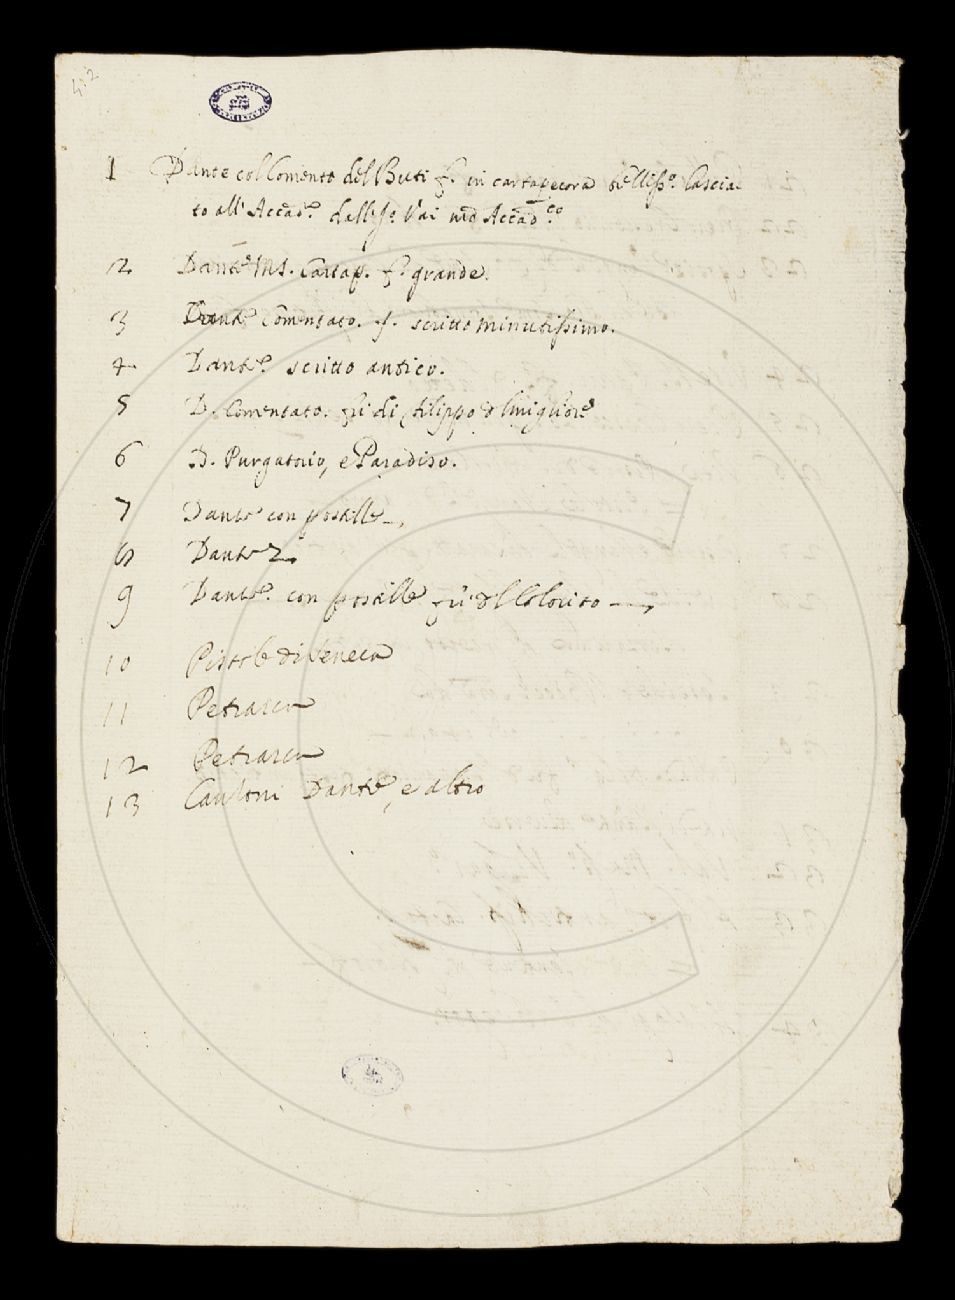 412
1 Dante col Comento del Buti f.º in cartapecora bellissº. lascia-
to all' Accadª. dall' Vai nrõ Accadco.
2 Dante MS. Cartap. f.º grande.
3 Dante Comentato. f. scritto minutissimo.
4 Dante scritto antico.
5 D. Comentato. fù di Filippo
6 D. Purgatorio, e Paradiso.
7 Dante con postille
8 Dante 2.
9 Dante. con postille fù dl Colorito
10 Pistole di Seneca
11 Petrarca
12 Petrarca
13 Canzoni Dante, e altro